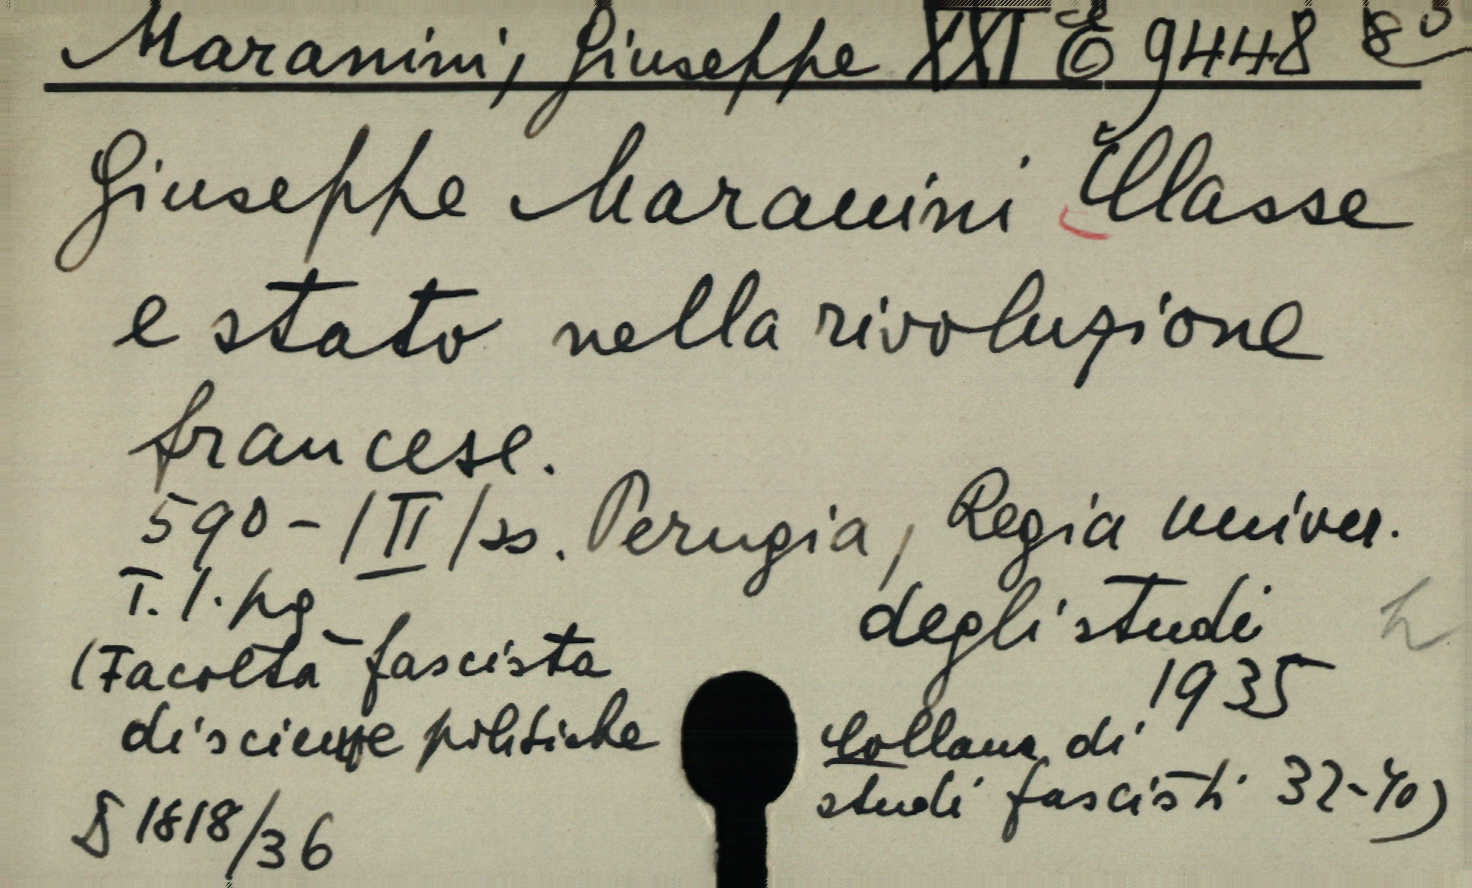 Maranini, Giuseppe XXI C 9448 8°
Giuseppe Maranini Classe
e stato nella rivoluzione
francese.
590-/II/ss. Perugia, Regia univer.
T. 1. pg degli studi
1935
(Facoltà fascista
di scienze politiche
Collana di
studi fascisti 32-40)
§ 1818/36